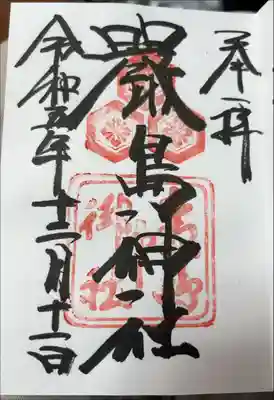 奉拝
嚴島神社
令和五年十二月十一日